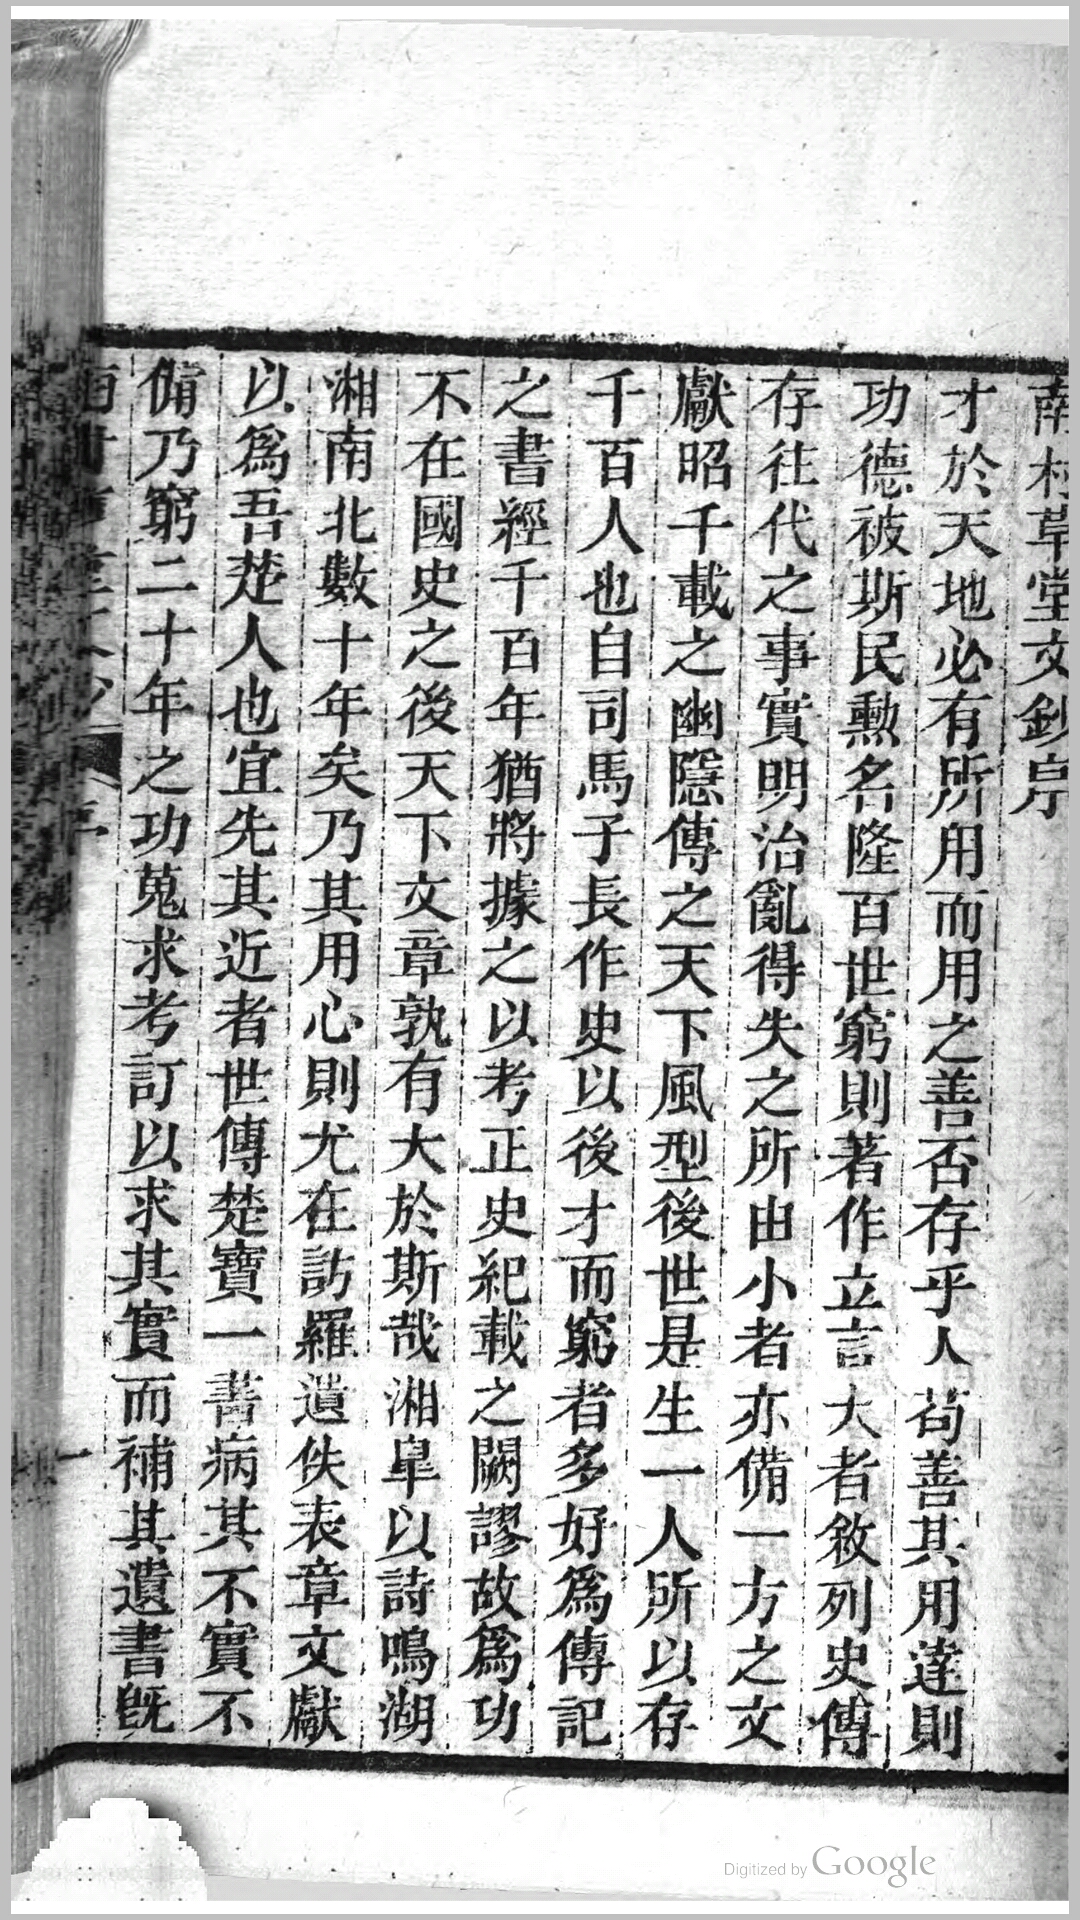 南村草堂文鈔序
才於天地必有所用而用之善否存乎人苟善其用達則
功德被斯民勲名隆百世窮則著作立言大者敘列史傳
存往代之事實明治亂得失之所由小者亦備一方之文
獻昭千載之幽隱傳之天下風型後世是生一人所以存
千百人也自司馬子長作史以後才而窮者多好爲傳記
之書經千百年猶將據之以考正史紀載之闕謬故爲功
不在國史之後天下文章孰有大於斯哉湘皐以詩鳴湖
湘南北數十年矣乃其用心則尤在訪羅遺佚表章文獻
以爲吾楚人也宜先其近者世傳楚寶一書病其不實不
備乃窮二十年之功蒐求考訂以求其實而補其遺書旣
Digitized by Google